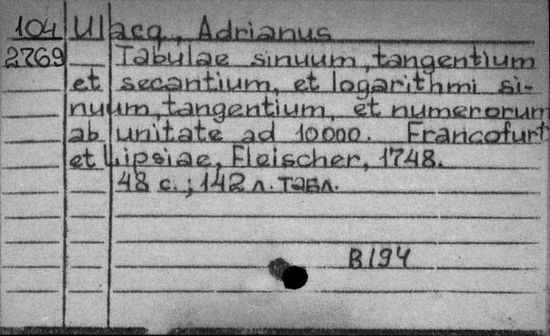 104 Ulacq, Adrianus
2769 Tabulae sinuum, tangentium
et secantium, et logarithmi si-
nuum, tangentium, et numerorum
ab unitate ad 10000. Francofurti
et Lipsiae, Fleischer, 1748.
48 с.; 142 л. табл.
B194